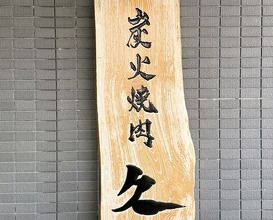 炭火焼肉
久